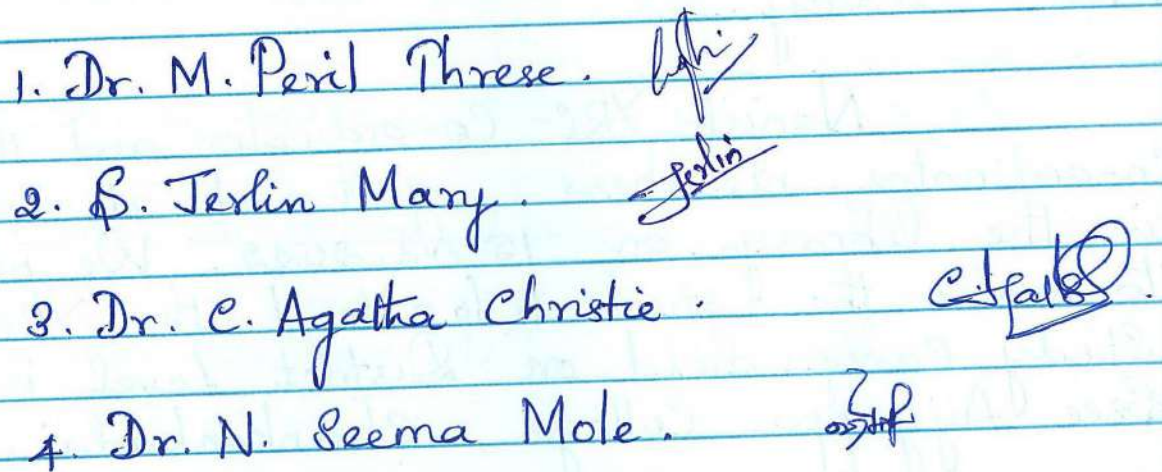 1. Dr. M. Peril Threse.
2. S. Jerlin Mary. Jerlin
3. Dr. C. Agatha Christie.
4. Dr. N. Seema Mole.